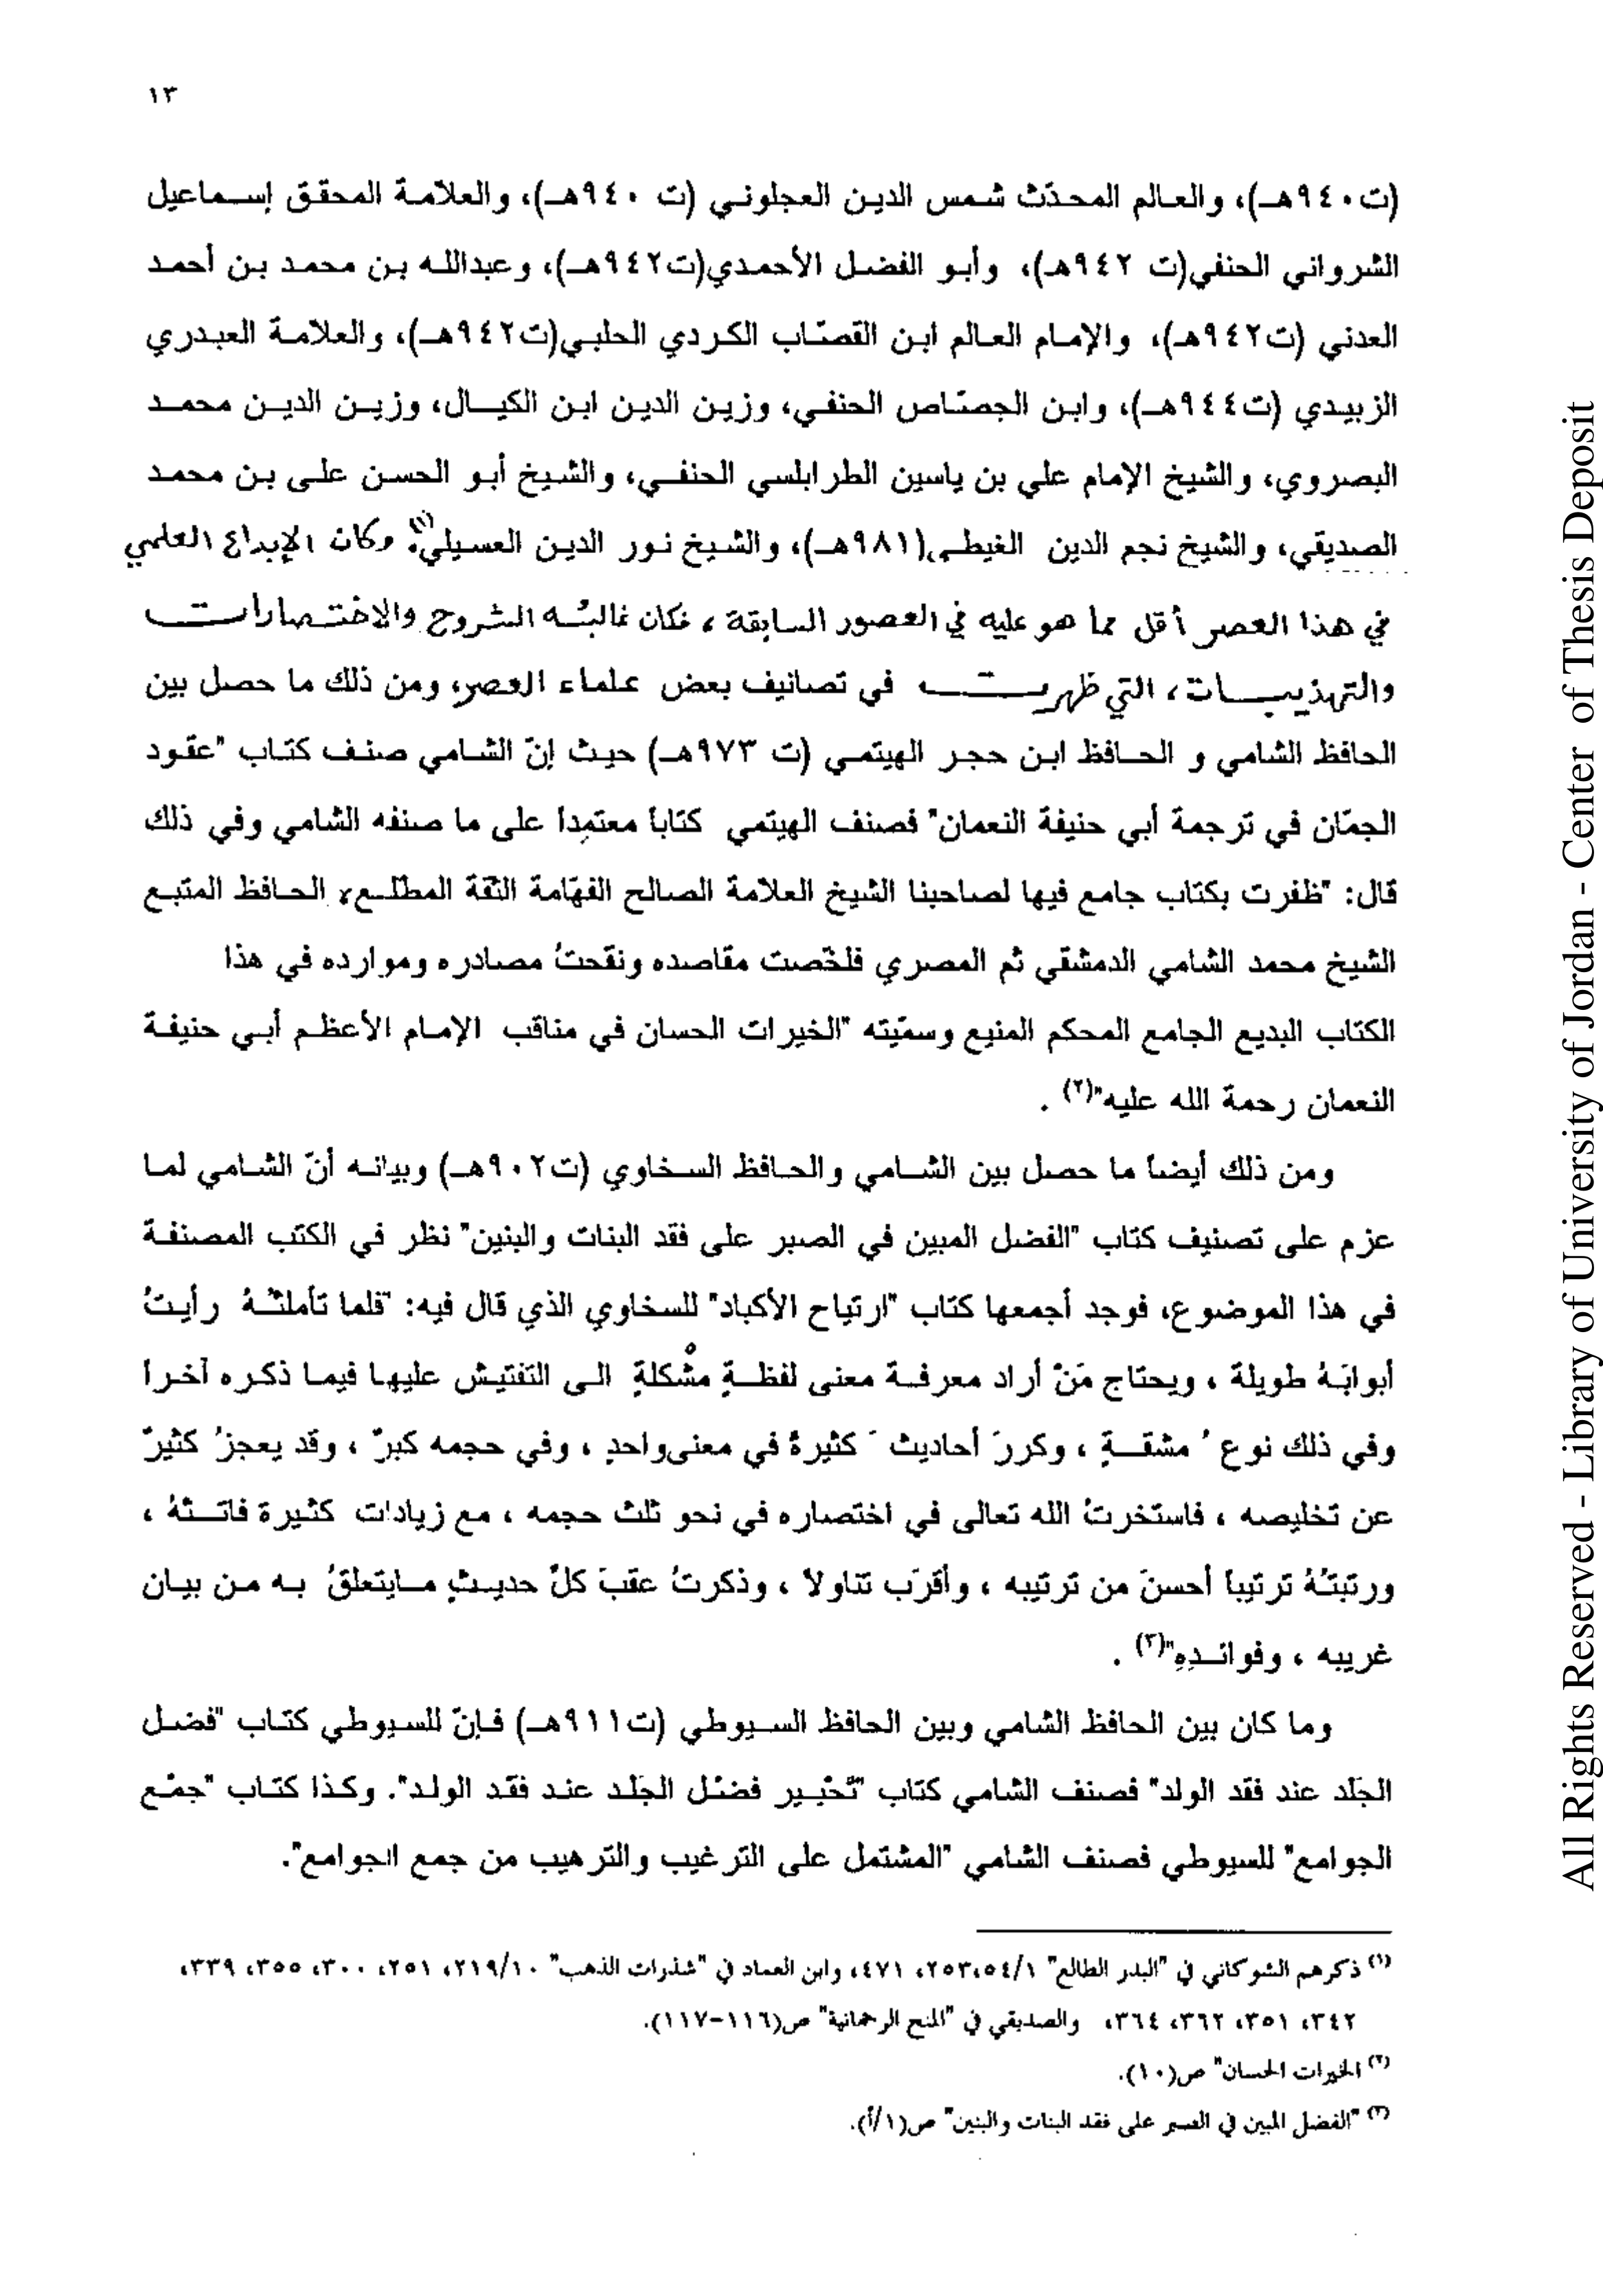 ١٣
(ت٩٤٠هـ)، والعالم المحدّث شمس الدين العجلوني (ت ٩٤٠هـ)، والعلامة المحقق إسماعيل
الشرواني الحنفي(ت ٩٤٢هـ)، وأبو الفضل الأحمدي(ت٩٤٢هـ)، وعبدالله بن محمد بن أحمد
العدني (ت٩٤٢هـ)، والإمام العالم ابن القصّاب الكردي الحلبي(ت٩٤٢هـ)، والعلامة العبدري
الزبيدي (ت٩٤٤هـ)، وابن الجصّاص الحنفي، وزين الدين ابن الكيال، وزين الدين محمد
البصروي، والشيخ الإمام علي بن ياسين الطرابلسي الحنفي، والشيخ أبو الحسن على بن محمد
الصديقي، والشيخ نجم الدين الغيطي(٩٨١هـ)، والشيخ نور الدين العسيلي(١). وكان الإبداع العلمي
في هذا العصر أقل مما هو عليه في العصور السابقة، فكان غالبُه الشروح والاختصارات
والتهذيبات، التي ظهرت في تصانيف بعض علماء العصر، ومن ذلك ما حصل بين
الحافظ الشامي و الحافظ ابن حجر الهيتمي (ت ٩٧٣هـ) حيث إنّ الشامي صنف كتاب "عقود
الجمّان في ترجمة أبي حنيفة النعمان" فصنف الهيتمي كتاباً معتمِداً على ما صنفه الشامي وفي ذلك
قال: "ظفرت بكتاب جامع فيها لصاحبنا الشيخ العلامة الصالح الفهّامة الثقة المطلع، الحافظ المتبع
الشيخ محمد الشامي الدمشقي ثم المصري فلخّصت مقاصده ونقحتُ مصادره وموارده في هذا
الكتاب البديع الجامع المحكم المنيع وسميّته "الخيرات الحسان في مناقب الإمام الأعظم أبي حنيفة
النعمان رحمة الله عليه"(٢) .
ومن ذلك أيضاً ما حصل بين الشامي والحافظ السخاوي (ت٩٠٢هـ) وبيانه أنّ الشامي لما
عزم على تصنيف كتاب "الفضل المبين في الصبر على فقد البنات والبنين" نظر في الكتب المصنفة
في هذا الموضوع، فوجد أجمعها كتاب "ارتياح الأكباد" للسخاوي الذي قال فيه: "فلما تأملتُهُ رأيتُ
أبوابَهُ طويلة ، ويحتاج مَنْ أراد معرفة معنى لفظةٍ مشْكلةٍ الى التفتيش عليها فيما ذكره آخراً
وفي ذلك نوع ُ مشقةٍ ، وكررَ أحاديث َ كثيرةً في معنى واحدٍ ، وفي حجمه كبرٌ ، وقد يعجزُ كثيرٌ
عن تخليصه ، فاستخرتُ الله تعالى في اختصاره في نحو ثلث حجمه ، مع زيادات كثيرة فاتتْهُ ،
ورتبتُهُ ترتيباً أحسنَ من ترتيبه ، وأقرَب تناولاً ، وذكرتُ عقبَ كلّ حديثٍ مايتعلقُ به من بيان
غريبه ، وفوائدِهِ"(٣) .
وما كان بين الحافظ الشامي وبين الحافظ السيوطي (ت٩١١هـ) فإنّ للسيوطي كتاب "فضل
الجَلَد عند فقد الولد" فصنف الشامي كتاب "تَحْبير فضْل الجَلد عند فقد الولد". وكذا كتاب "جمْع
الجوامع" للسيوطي فصنف الشامي "المشتمل على الترغيب والترهيب من جمع الجوامع".
(١) ذكرهم الشوكاني في "البدر الطالع" ٢٥٣،٥٤/١، ٤٧١، وابن العماد في "شذرات الذهب" ٢١٩/١٠، ٢٥١، ٣٠٠، ٣٥٥، ٣٣٩،
٣٤٢، ٣٥١، ٣٦٢، ٣٦٤، والصديقي في "المنح الرحمانية" ص(١١٦-١١٧).
(٢) الخيرات الحسان" ص(١٠).
(٣) "الفضل المبين في الصبر على فقد البنات والبنين" ص(١/أ).
All Rights Reserved - Library of University of Jordan - Center of Thesis Deposit